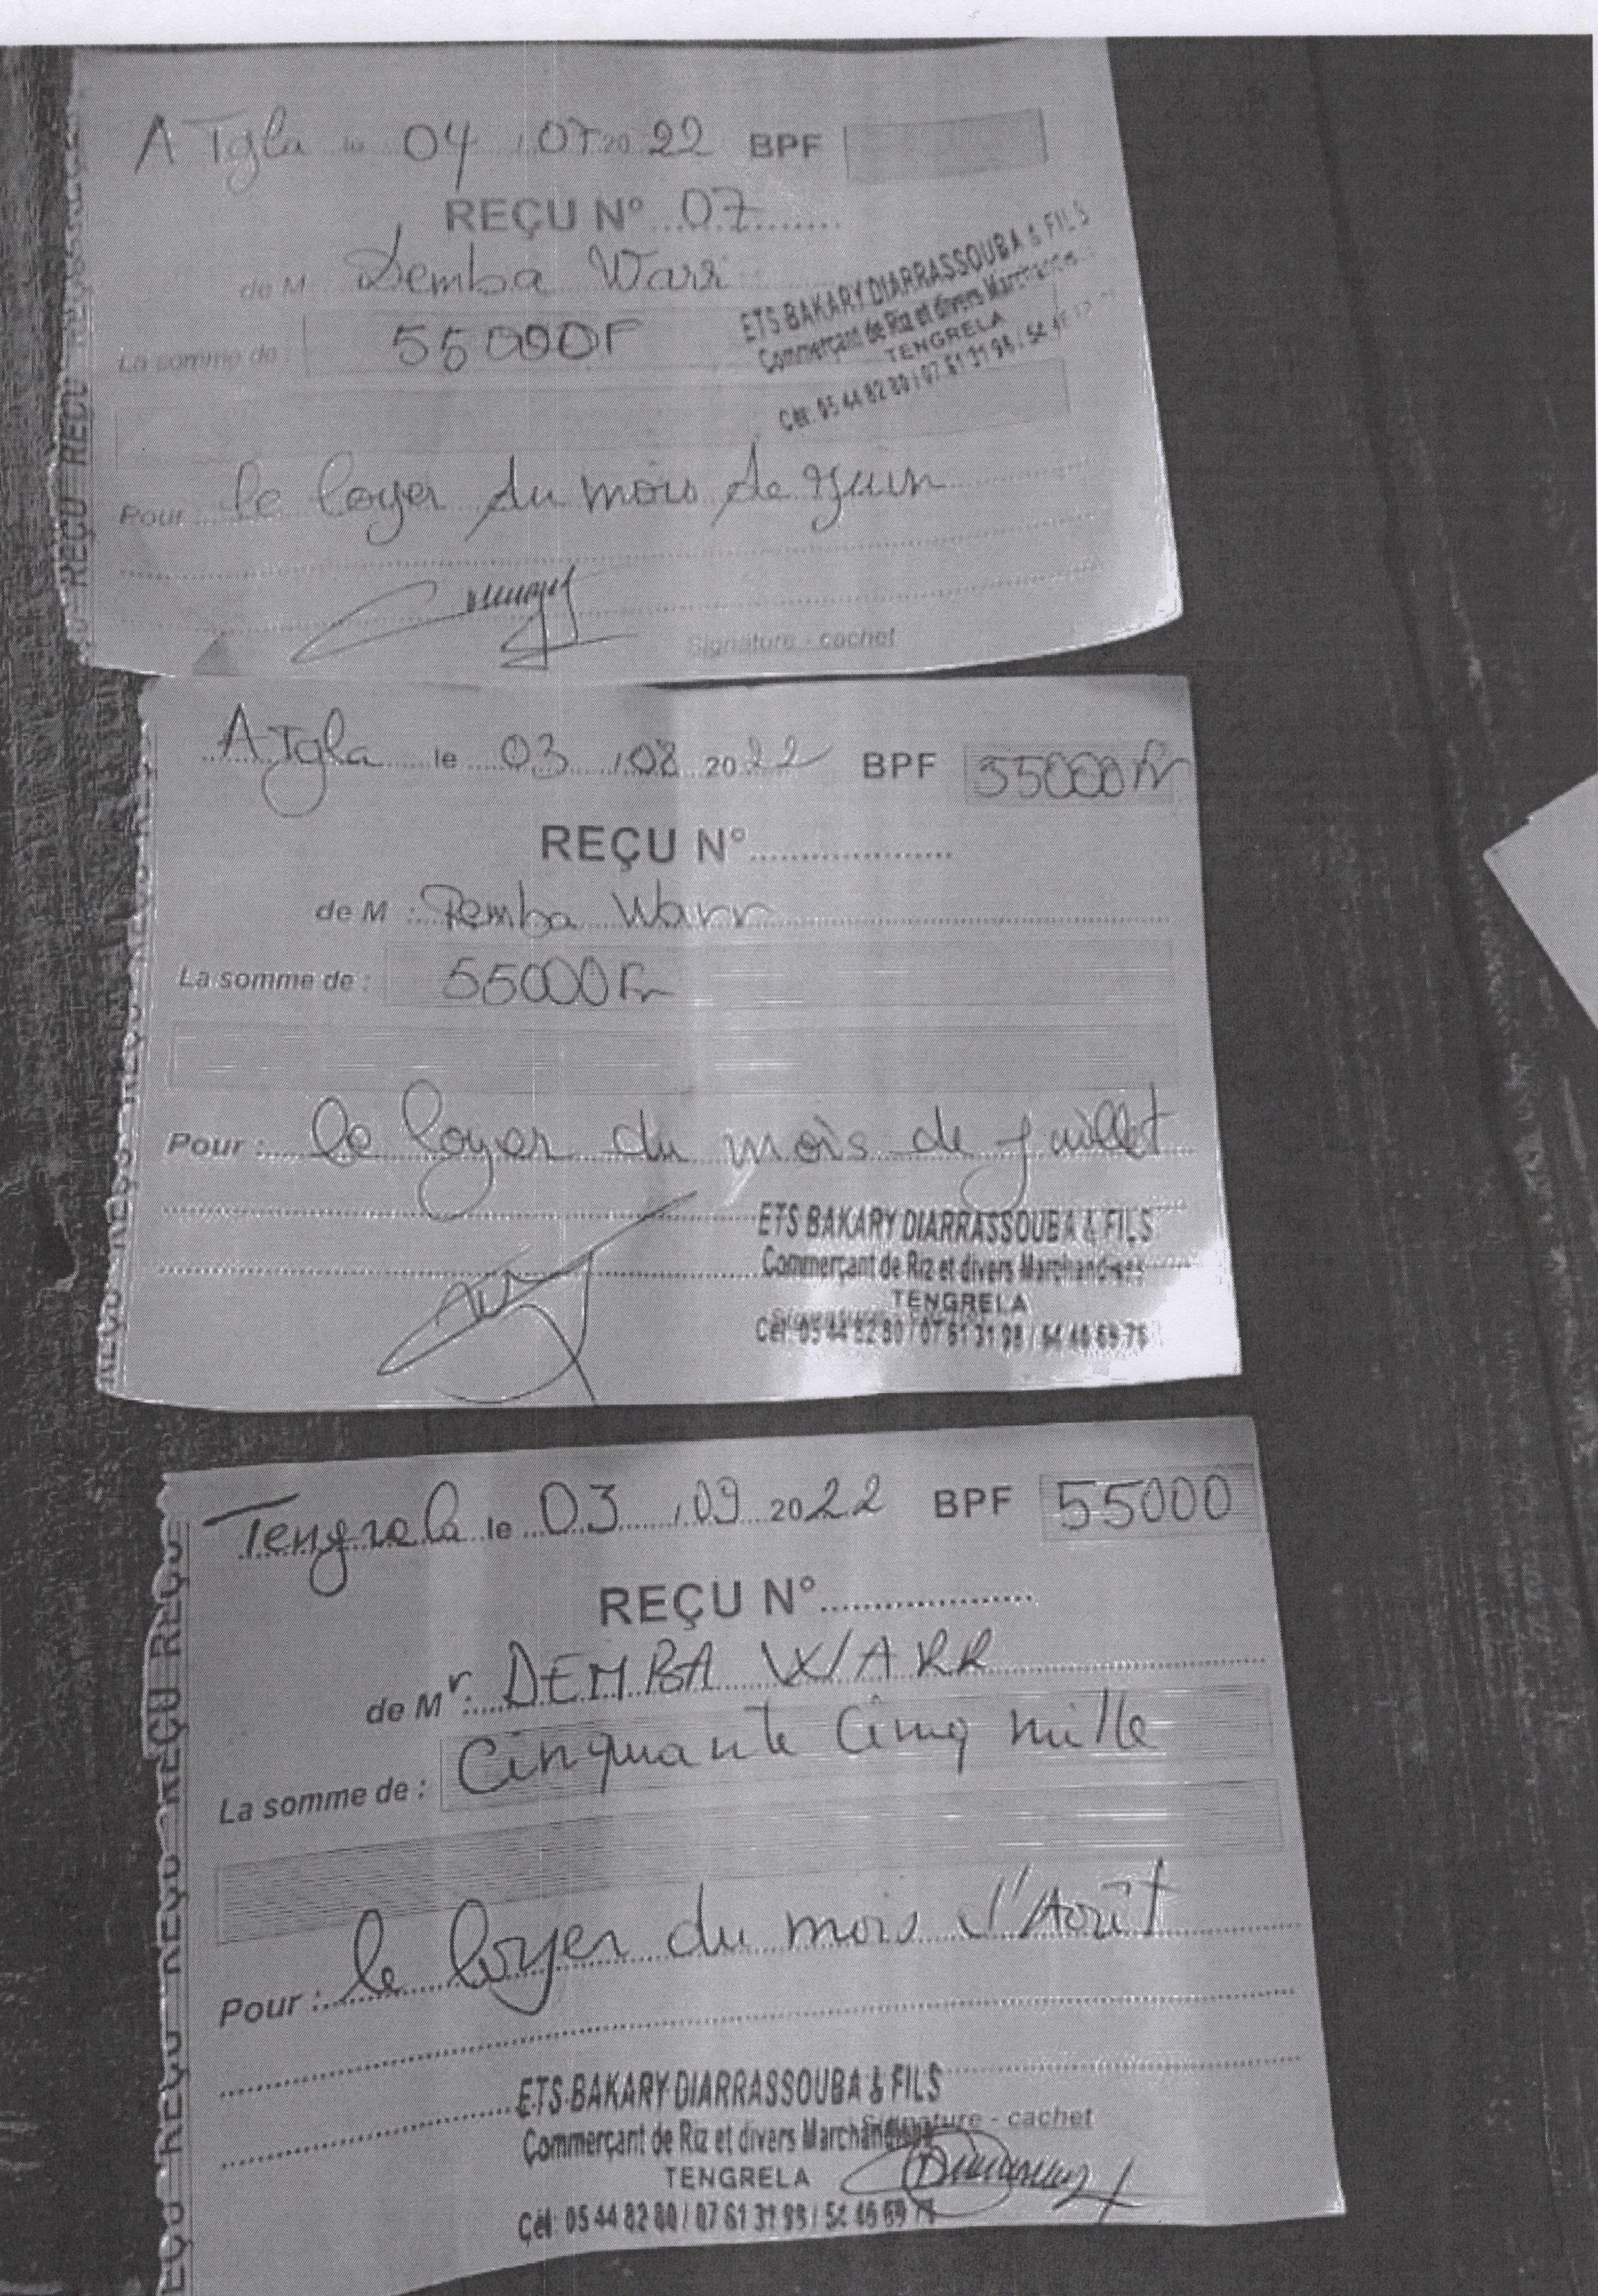 A Tgla le 04 / 07 20 22 BPF
REÇU N° 07
de M Demba Warr
La somme de : 55000F
ETS BAKARY DIARRASSOUBA & FILS
Commerçant de Riz et divers Marchandises
TENGRELA
Cél: 05 44 82 80 / 07 61 31 98 / 54 46
Pour : le loyer du mois de Juin
Signature - cachet
REÇU REÇU REÇU
A Tgla le 03 / 08 20 22 BPF 55000 Fr
REÇU N°
de M : Demba Warr
La somme de : 55000 Fr
Pour : le loyer du mois de juillet
ETS BAKARY DIARRASSOUBA & FILS
Commerçant de Riz et divers Marchandises
TENGRELA
Signature
Cél: 05 44 82 80 / 07 61 31 98 / 54 46 69 76
Tengrela le 03 / 09 20 22 BPF 55000
REÇU N°
de Mr : DEMBA WARR
La somme de : Cinquante Cinq mille
Pour : le loyer du mois d'Août
ETS BAKARY DIARRASSOUBA & FILS
Signature - cachet
Commerçant de Riz et divers Marchandises
TENGRELA
Cél: 05 44 82 80 / 07 61 31 98 / 54 46 69 76
REÇU REÇU REÇU REÇU